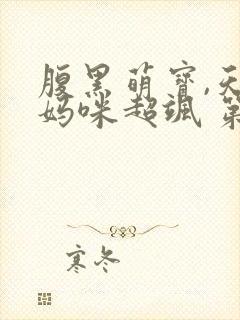 腹黑萌宝,天
妈咪超飒 第
寒冬